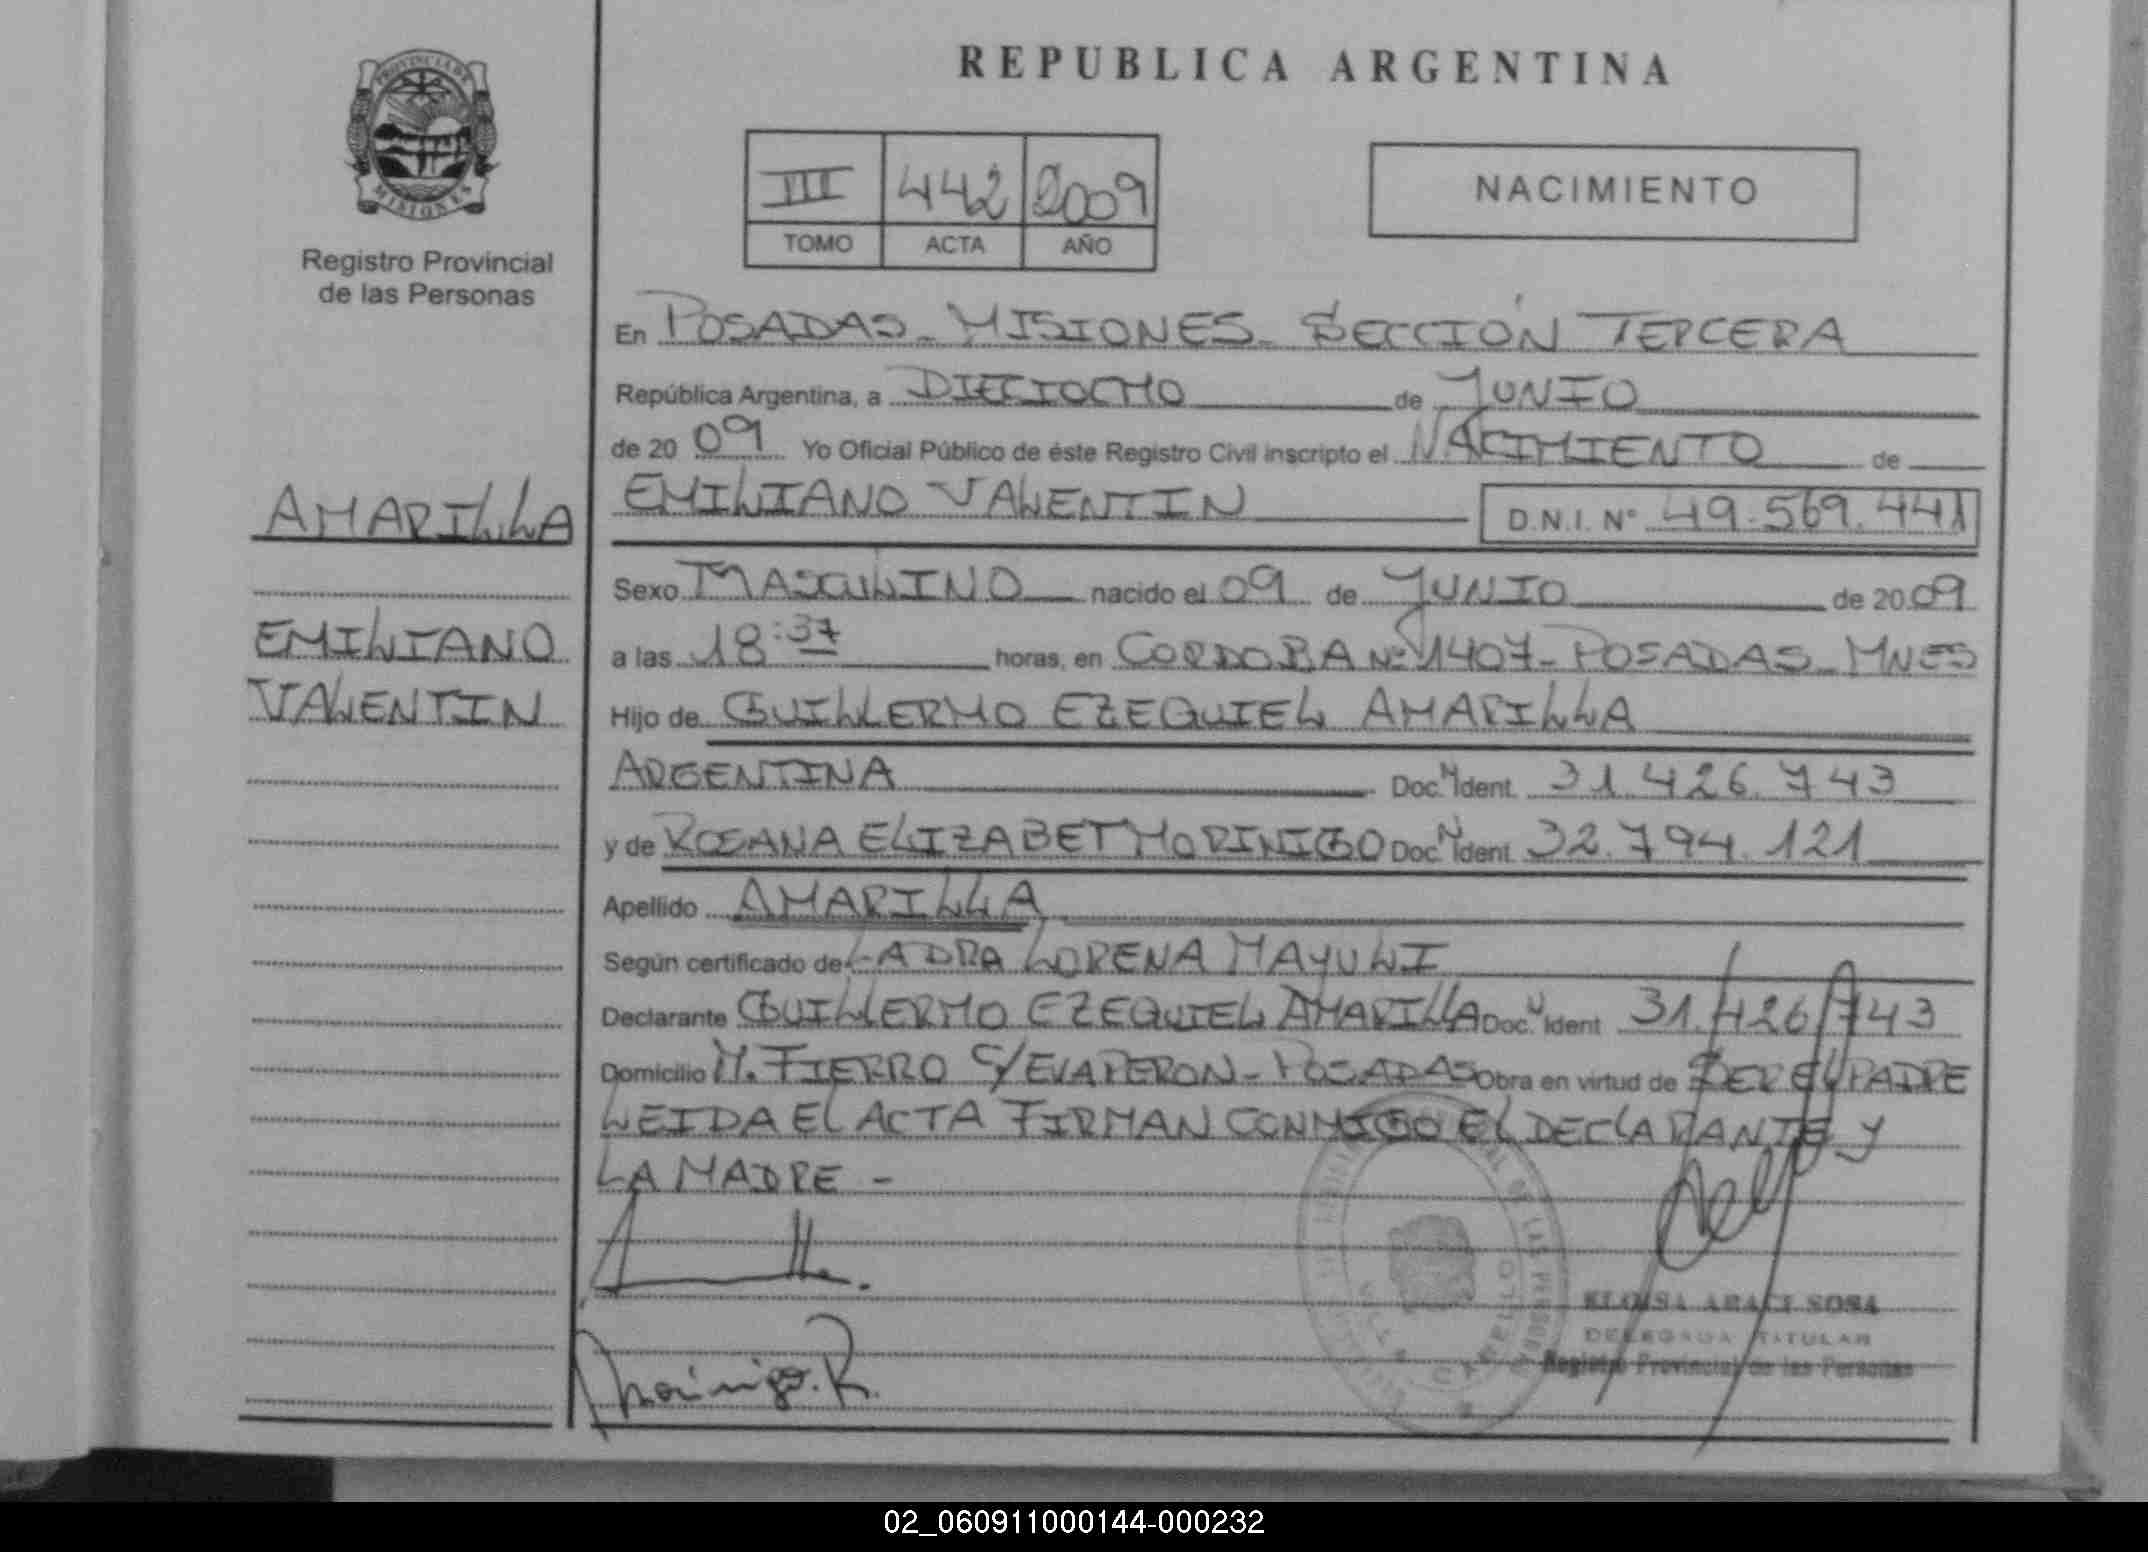 PROVINCIA DE
MISIONES
Registro Provincial
de las Personas
AMARILLA
EMILIANO
VALENTIN
REPUBLICA ARGENTINA
III 442 2009
TOMO ACTA AÑO
NACIMIENTO
En POSADAS - MISIONES - SECCIÓN TERCERA
República Argentina, a DIECIOCHO de JUNIO
de 2009 Yo Oficial Público de éste Registro Civil inscripto el NACIMIENTO de
EMILIANO VALENTIN D.N.I. N° 49.569.441
Sexo MASCULINO nacido el 09 de JUNIO de 2009
a las 18:37 horas, en CORDOBA Nº 1407 - POSADAS - MNES
Hijo de GUILLERMO EZEQUIEL AMARILLA
ARGENTINA Doc. N Ident. 31.426.743
y de ROSANA ELIZABET MORINIGO Doc. N Ident. 32.794.121
Apellido AMARILLA
Según certificado de LA DRA LORENA MAYULI
Declarante GUILLERMO EZEQUIEL AMARILLA Doc. N Ident 31.426.743
Domicilio M. FIERRO S/ EVA PERON - POSADAS Obra en virtud de SER EL PADRE
LEIDA EL ACTA FIRMAN CONMIGO EL DECLARANTE Y
LA MADRE -
Morinigo. R.
ELOISA ARACI SOSA
DELEGADA TITULAR
Registro Provincial de las Personas
02_060911000144-000232